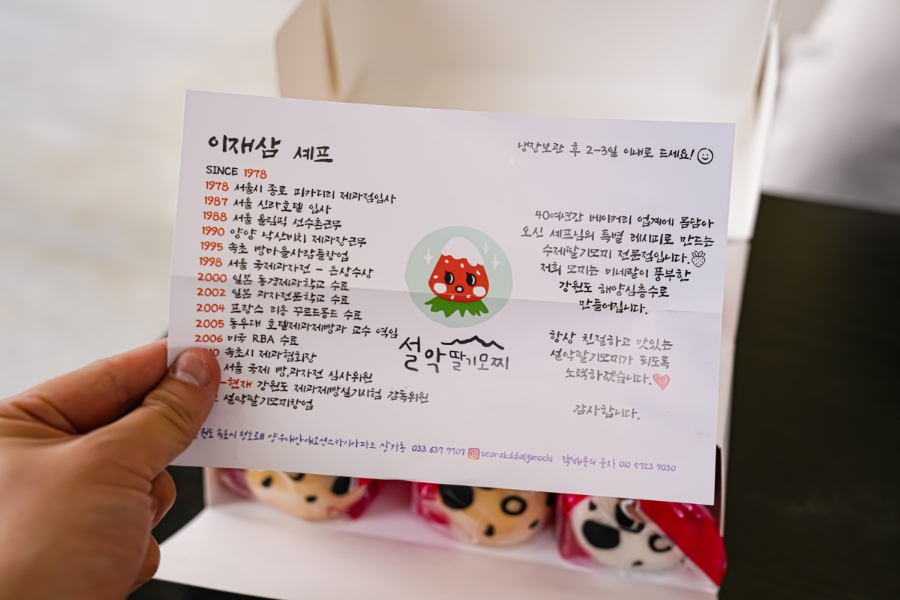 이재삼 셰프
SINCE 1978
1978 서울시 종로 피카디리 제과점입사
1987 서울 신라호텔 입사
1988 서울 올림픽 선수촌근무
1990 양양 낙산비치 제과장근무
1995 속초 빵마을사람들창업
1998 서울 국제과자전 - 은상수상
2000 일본 동경제과학교 수료
2002 일본 과자전문학교 수료
2004 프랑스 리옹 꾸르드몽드 수료
2005 동우대 호텔제과제빵과 교수 역임
2006 미국 RBA 수료
10 속초시 제과협회장
서울 국제 빵,과자전 심사위원
-현재 강원도 제과제빵실기시험 감독위원
설악딸기모찌창업
냉장보관 후 2-3일 이내로 드세요!
40여년간 베이커리 업계에 몸담아
오신 셰프님의 특별 레시피로 만드는
수제딸기모찌 전문점입니다.
저희 모찌는 미네랄이 풍부한
강원도 해양심층수로
만들어집니다.
항상 친절하고 맛있는
설악딸기모찌가 되도록
노력하겠습니다.
감사합니다.
설악딸기모찌
강원도 속초시 청호로8 상가동 033 637 7707 seorakddalgimochi 택배문의 문자 010 5723 9030